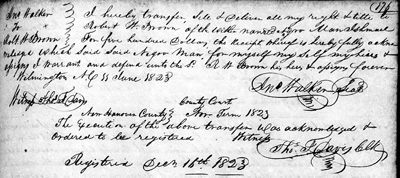 Jno Walker } I hereby transfer, Sell & Deliver all my right & title to
To } Robert H. Brown of the within named Negro Man Ishmael
Robt H Brown } for five hundred Dollars, the Receipt whereof is hereby fully ackn
which Said Said Negro Man for myself my self my heirs &
assigns I warrant and defend unto the Sd R H Brown his heirs & assigns forever
Wilmington N.C 11 June 1823
Jno Walker Seal
Witness Thos F Davis
County Court
New Hanover County } Nov Term 1823
The Execution of the above transfer was acknowledged &
Ordered to be registered Witness
Thos F Davis Clk
Registered Decr 16th 1823